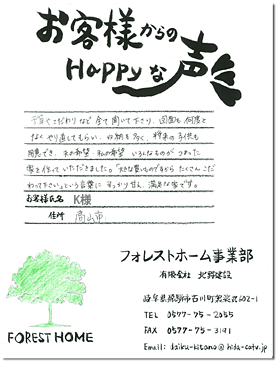 お客様からの
Happyな声
予算やこだわりなど全て聞いて下さり、図面も何度と
なくやり直してもらい、収納も多く、将来の子供も
用意でき、夫の希望・私の希望、いろんなものがつまった
家を作っていただきました。"大きな買いものですからたくさんこだ
わって下さい"という言葉にすっかり甘え、満足な家です。
お客様氏名 K様
住所 高山市
フォレストホーム事業部
有限会社 北野建設
岐阜県飛騨市古川町
TEL 0577-75-2055
FAX 0577-75-3191
Email: daiku-kitano@hida-catv.jp
FOREST HOME